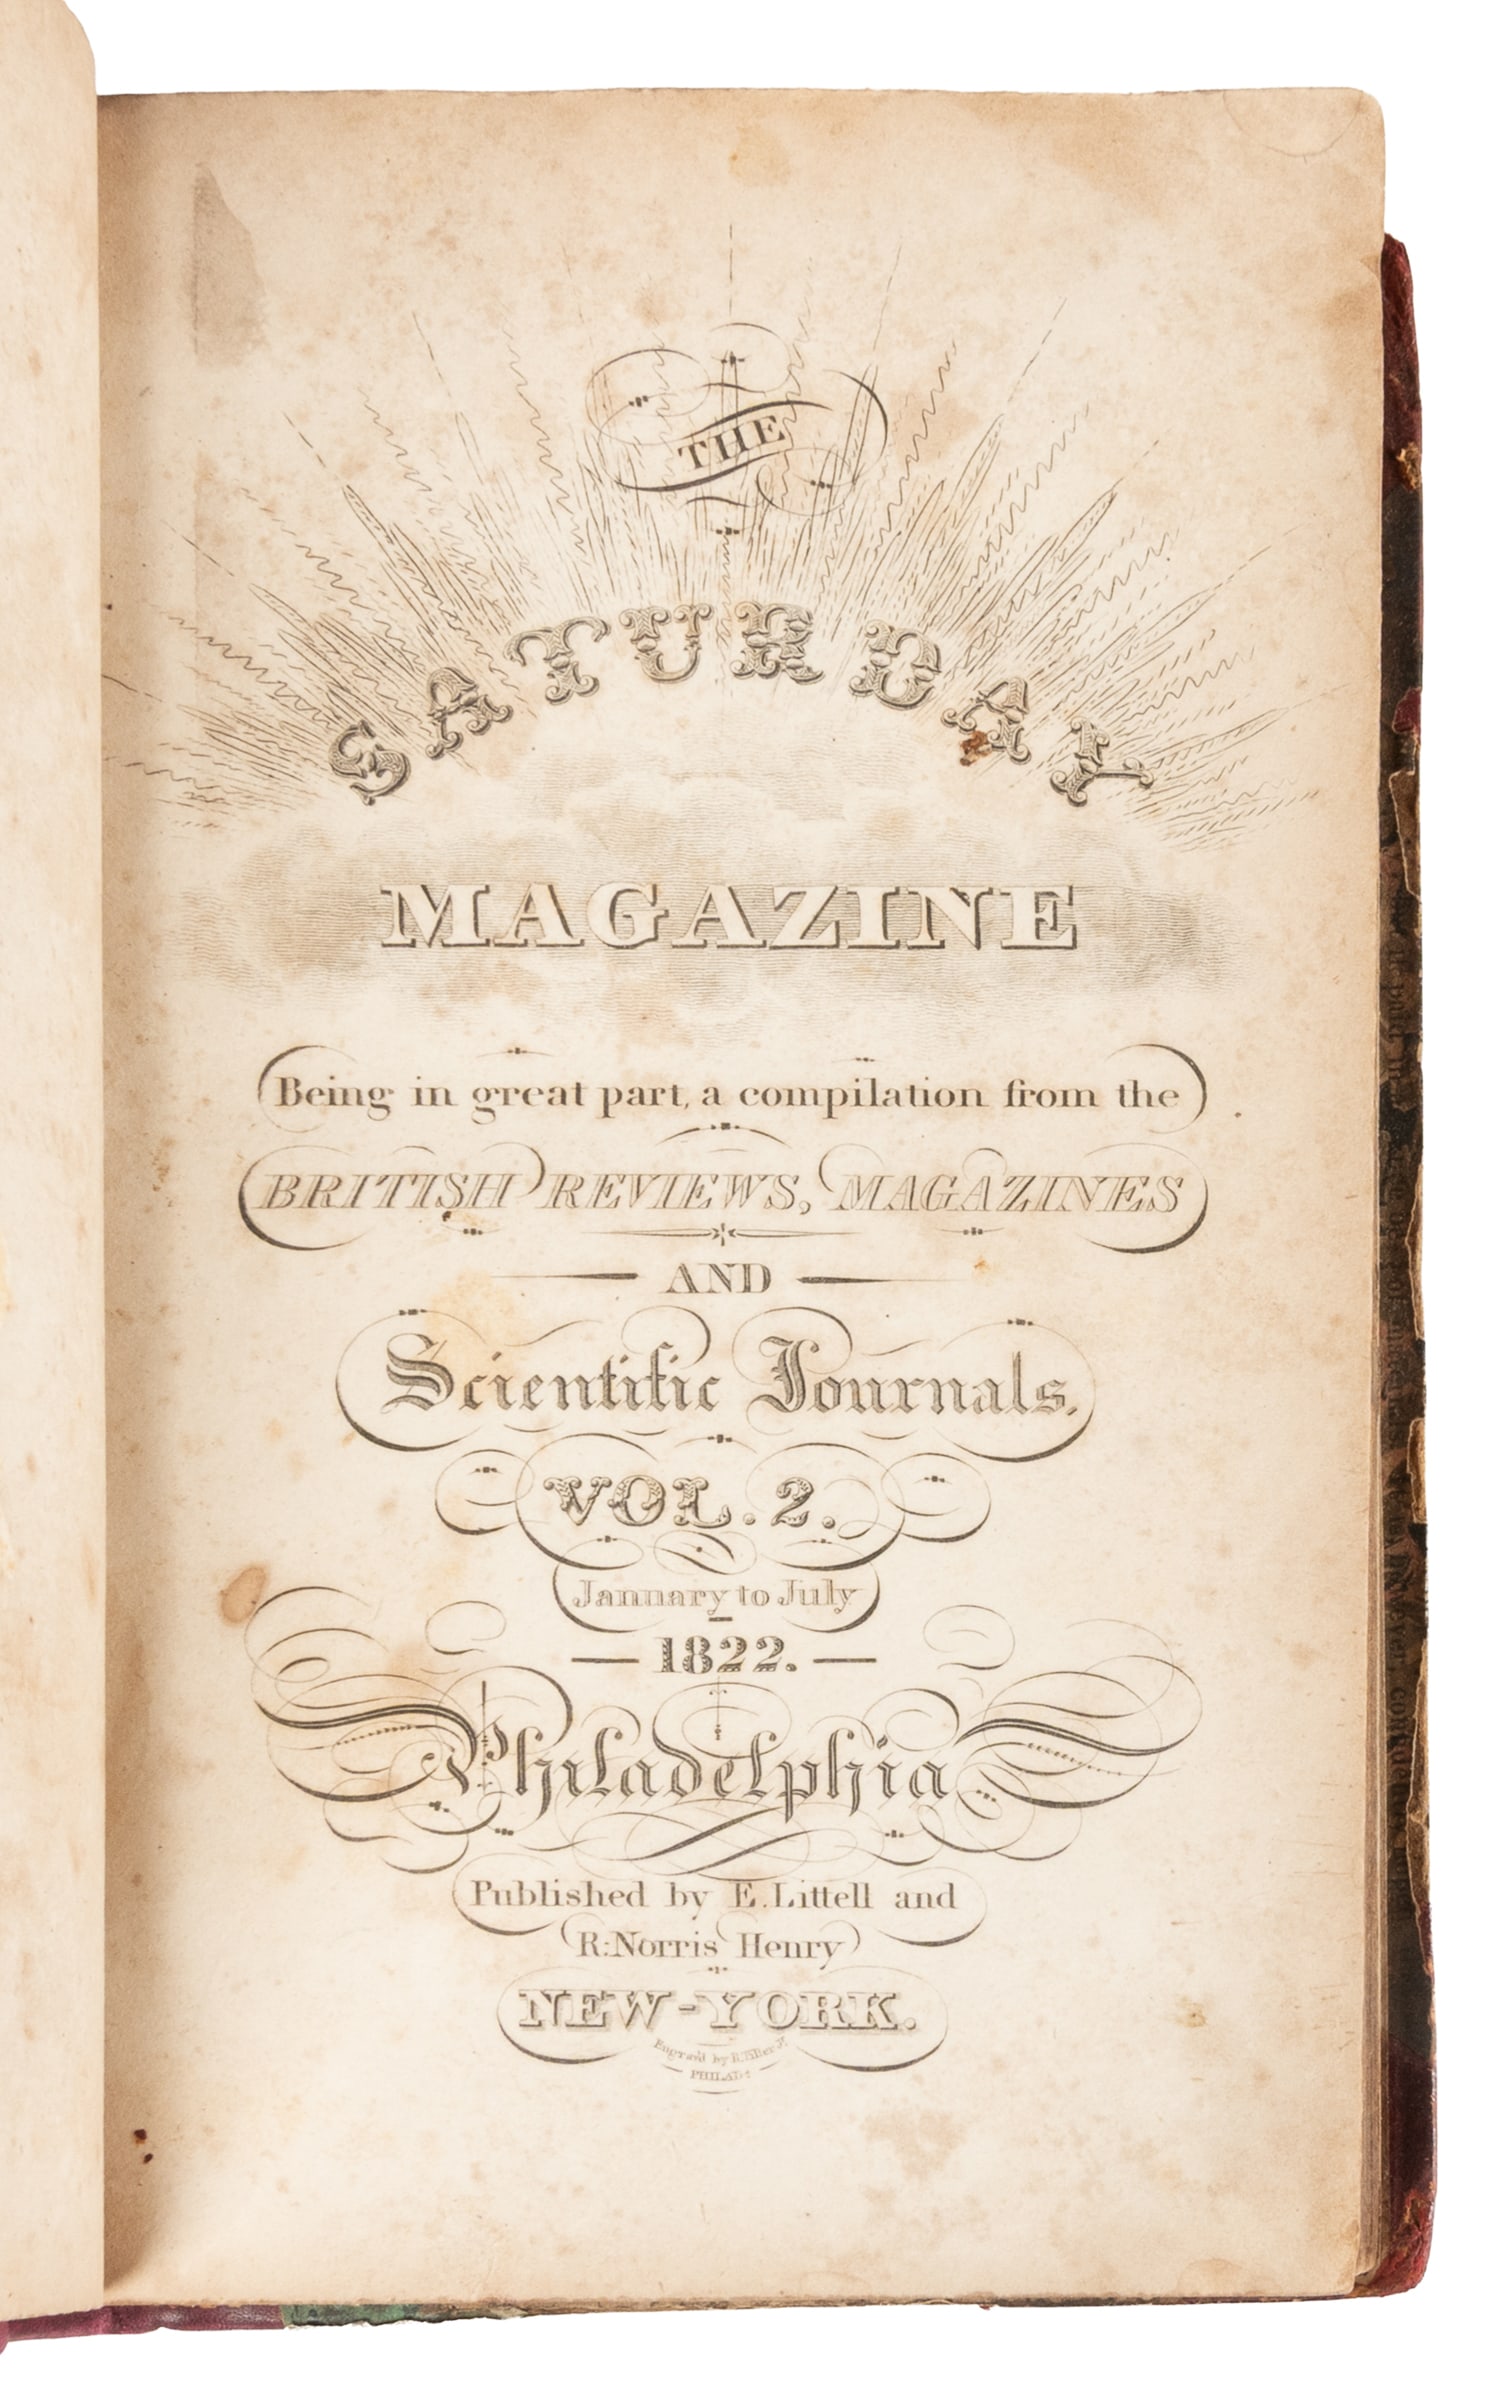 THE
SATURDAY
MAGAZINE
Being in great part, a compilation from the
BRITISH REVIEWS, MAGAZINES
AND
Scientific Journals.
VOL. 2.
January to July
1822.
Philadelphia
Published by E. Littell and
R: Norris Henry
NEW-YORK.
Engrav'd by
PHILAD